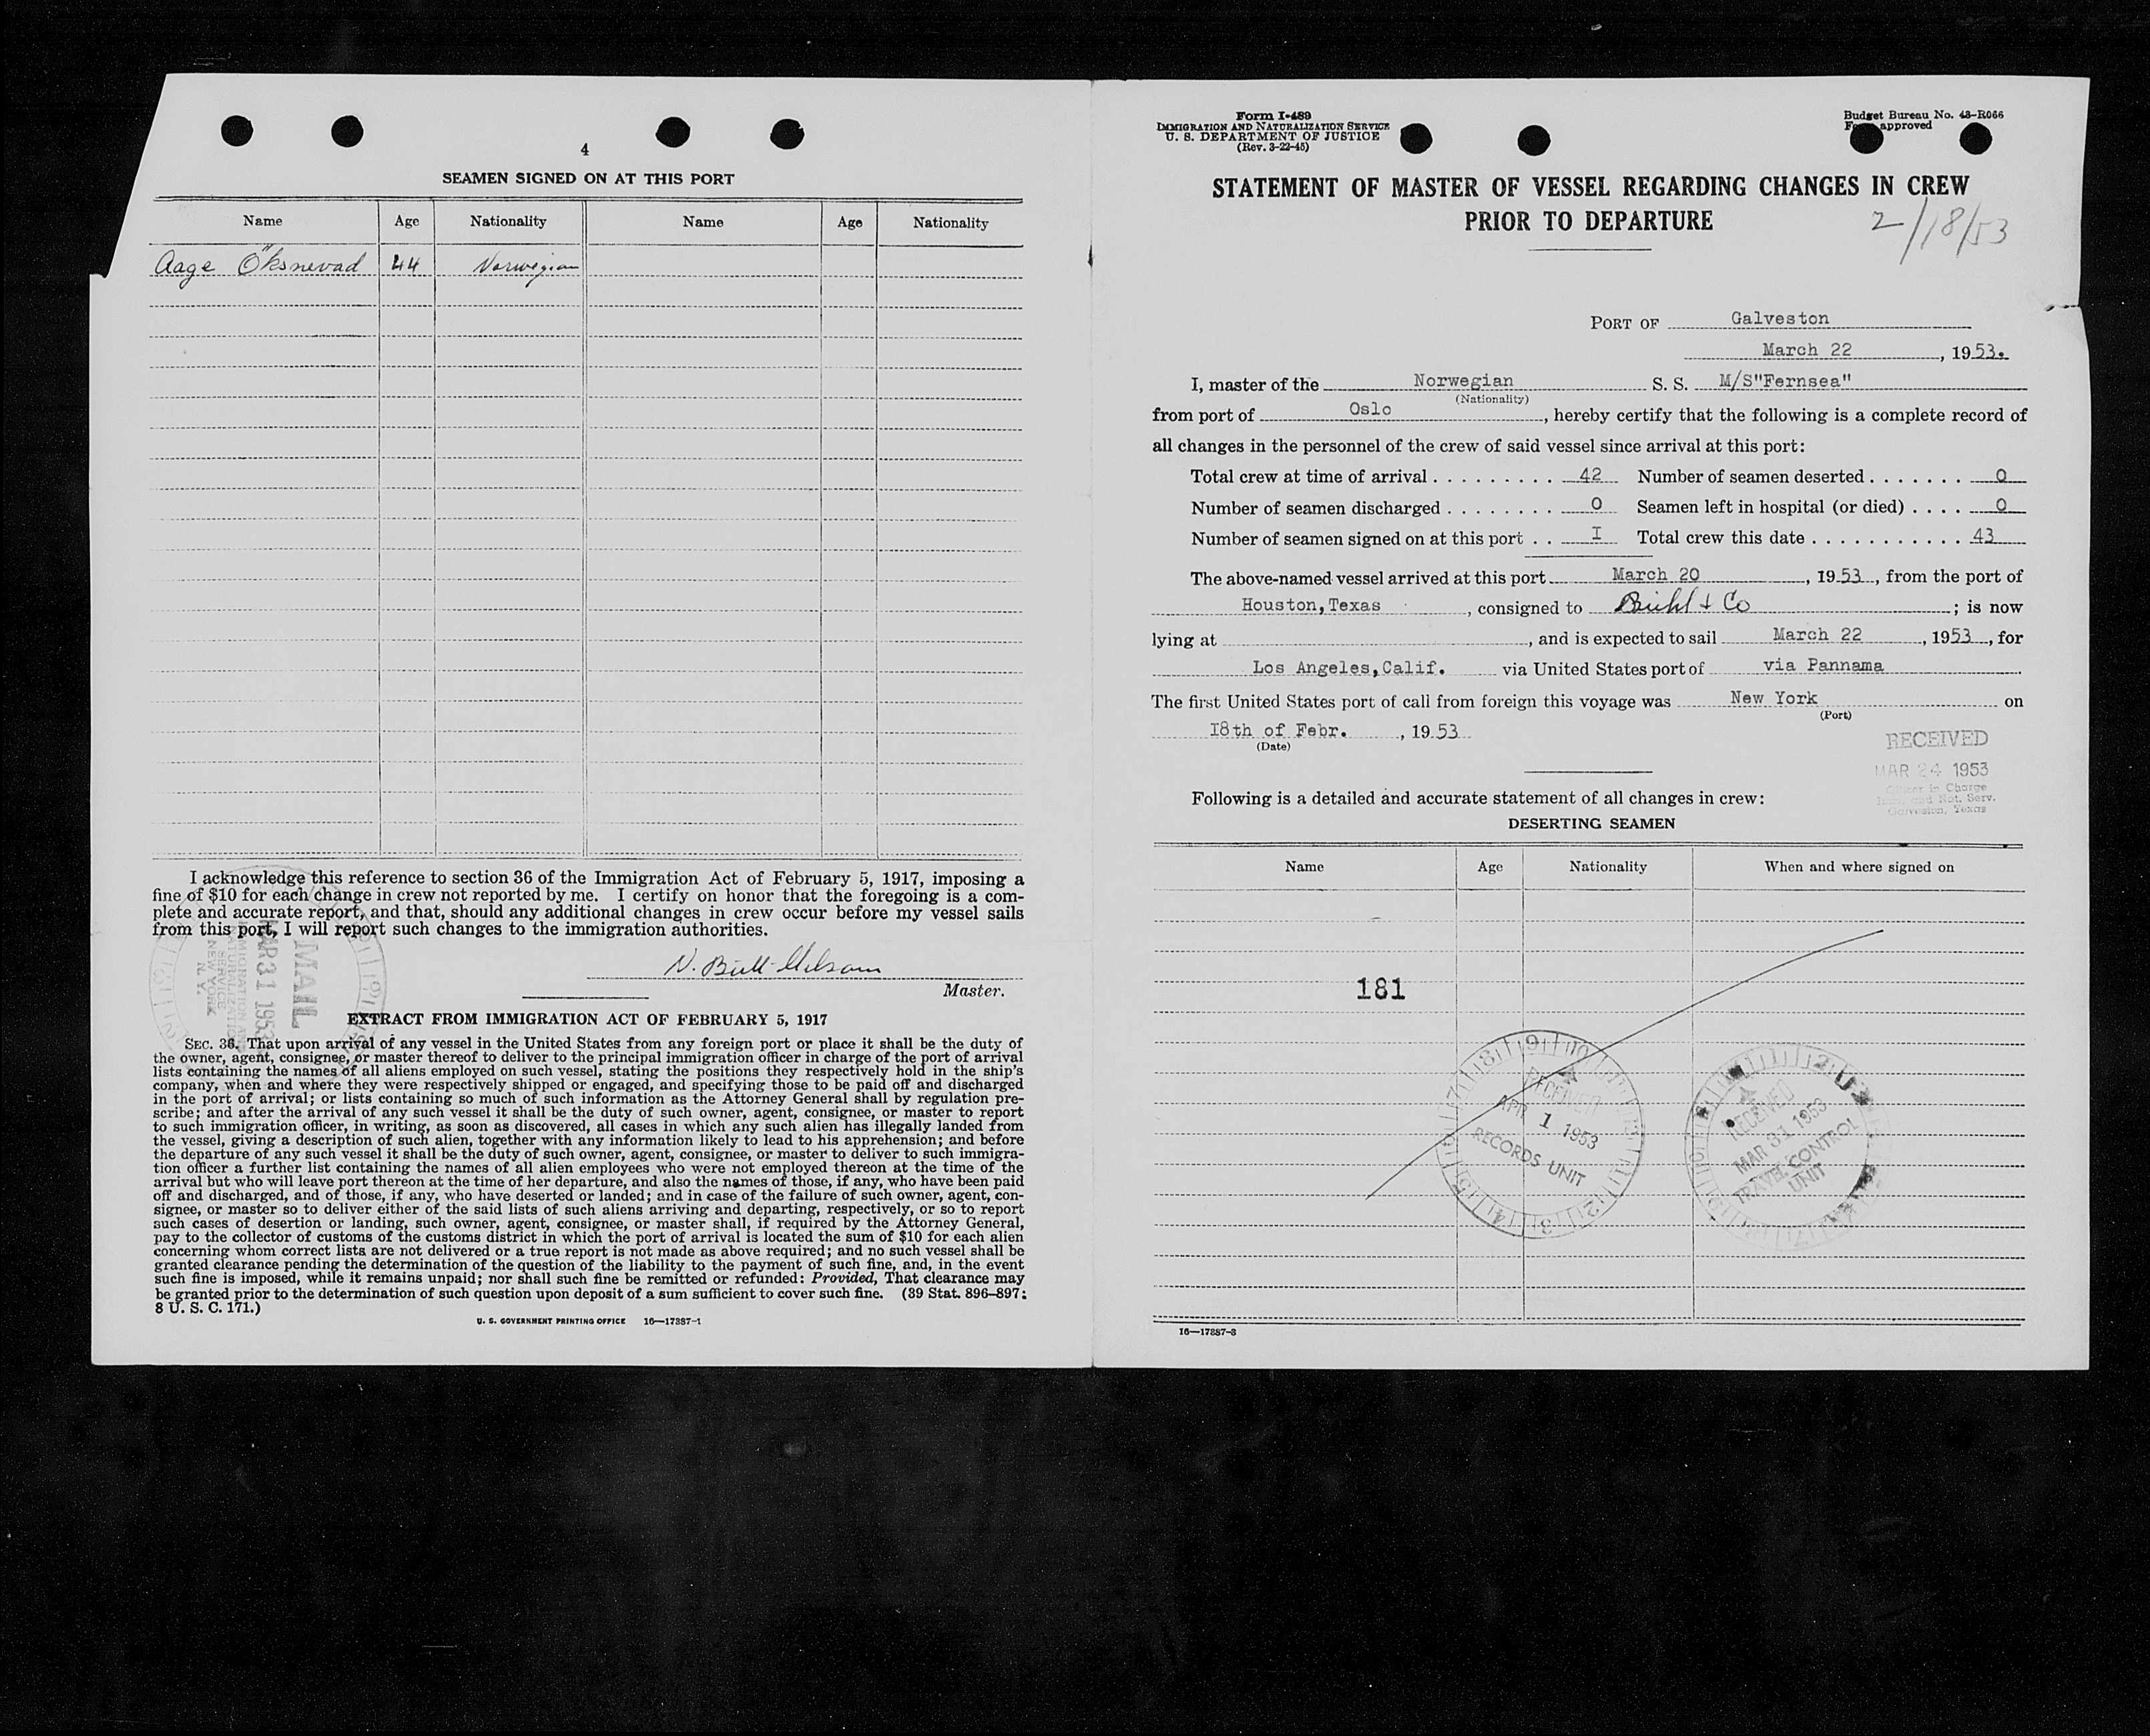 4
SEAMEN SIGNED ON AT THIS PORT
Name Age Nationality Name Age Nationality
Aage Öksnevad 44 Norwegian
I acknowledge this reference to section 36 of the Immigration Act of February 5, 1917, imposing a
fine of $10 for each change in crew not reported by me. I certify on honor that the foregoing is a com-
plete and accurate report, and that, should any additional changes in crew occur before my vessel sails
from this port, I will report such changes to the immigration authorities.
N. Bull
Master.
MAIL
MAR 31 1953
IMMIGRATION AND
NATURALIZATION
SERVICE
NEW YORK
N. Y.
EXTRACT FROM IMMIGRATION ACT OF FEBRUARY 5, 1917
SEC. 36. That upon arrival of any vessel in the United States from any foreign port or place it shall be the duty of
the owner, agent, consignee, or master thereof to deliver to the principal immigration officer in charge of the port of arrival
lists containing the names of all aliens employed on such vessel, stating the positions they respectively hold in the ship's
company, when and where they were respectively shipped or engaged, and specifying those to be paid off and discharged
in the port of arrival; or lists containing so much of such information as the Attorney General shall by regulation pre-
scribe; and after the arrival of any such vessel it shall be the duty of such owner, agent, consignee, or master to report
to such immigration officer, in writing, as soon as discovered, all cases in which any such alien has illegally landed from
the vessel, giving a description of such alien, together with any information likely to lead to his apprehension; and before
the departure of any such vessel it shall be the duty of such owner, agent, consignee, or master to deliver to such immigra-
tion officer a further list containing the names of all alien employees who were not employed thereon at the time of the
arrival but who will leave port thereon at the time of her departure, and also the names of those, if any, who have been paid
off and discharged, and of those, if any, who have deserted or landed; and in case of the failure of such owner, agent, con-
signee, or master so to deliver either of the said lists of such aliens arriving and departing, respectively, or so to report
such cases of desertion or landing, such owner, agent, consignee, or master shall, if required by the Attorney General,
pay to the collector of customs of the customs district in which the port of arrival is located the sum of $10 for each alien
concerning whom correct lists are not delivered or a true report is not made as above required; and no such vessel shall be
granted clearance pending the determination of the question of the liability to the payment of such fine, and, in the event
such fine is imposed, while it remains unpaid; nor shall such fine be remitted or refunded: Provided, That clearance may
be granted prior to the determination of such question upon deposit of a sum sufficient to cover such fine. (39 Stat. 896–897;
8 U. S. C. 171.)
U. S. GOVERNMENT PRINTING OFFICE 16—17387-1
Form I-489
IMMIGRATION AND NATURALIZATION SERVICE
U. S. DEPARTMENT OF JUSTICE
(Rev. 3-22-45)
Budget Bureau No. 43-R066
approved
STATEMENT OF MASTER OF VESSEL REGARDING CHANGES IN CREW
PRIOR TO DEPARTURE
2/18/53
PORT OF Galveston
March 22, 1953.
I, master of the Norwegian S. S. M/S"Fernsea"
(Nationality)
from port of Oslo, hereby certify that the following is a complete record of
all changes in the personnel of the crew of said vessel since arrival at this port:
Total crew at time of arrival 42 Number of seamen deserted 0
Number of seamen discharged 0 Seamen left in hospital (or died) 0
Number of seamen signed on at this port I Total crew this date 43
The above-named vessel arrived at this port March 20, 1953, from the port of
Houston, Texas, consigned to Biehl & Co; is now
lying at , and is expected to sail March 22, 1953, for
Los Angeles, Calif. via United States port of via Pannama
The first United States port of call from foreign this voyage was New York on
(Port)
I8th of Febr., 1953
(Date)
RECEIVED
MAR 24 1953
Officer in Charge
Imm. and Nat. Serv.
Galveston, Texas
Following is a detailed and accurate statement of all changes in crew:
DESERTING SEAMEN
Name Age Nationality When and where signed on
181
RECEIVED
APR 1 1953
RECORDS UNIT
RECEIVED
MAR 31 1953
TRAVEL CONTROL
UNIT
16—17387-3